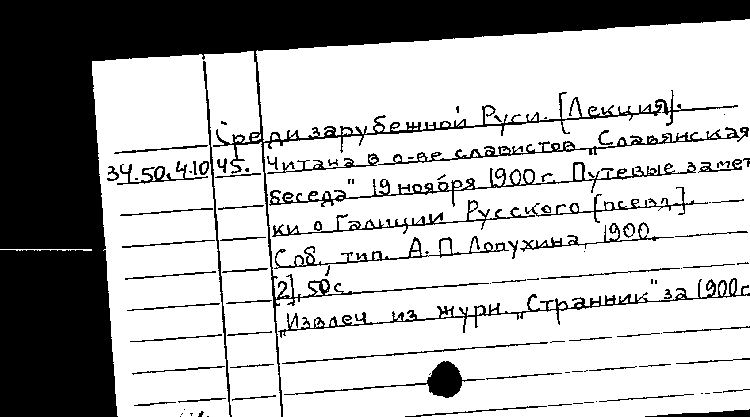 Среди зарубежной Руси. [Лекция].
34.50.4.10 45. Читана в о-ве славистов „Славянская
беседа" 19 ноября 1900 г. Путевые замет
ки о Галиции Русского [псевд.].
Спб., тип. А. П. Лопухина, 1900.
[2], 50 с.
„Извлеч. из журн. „Странник" за 1900 г.